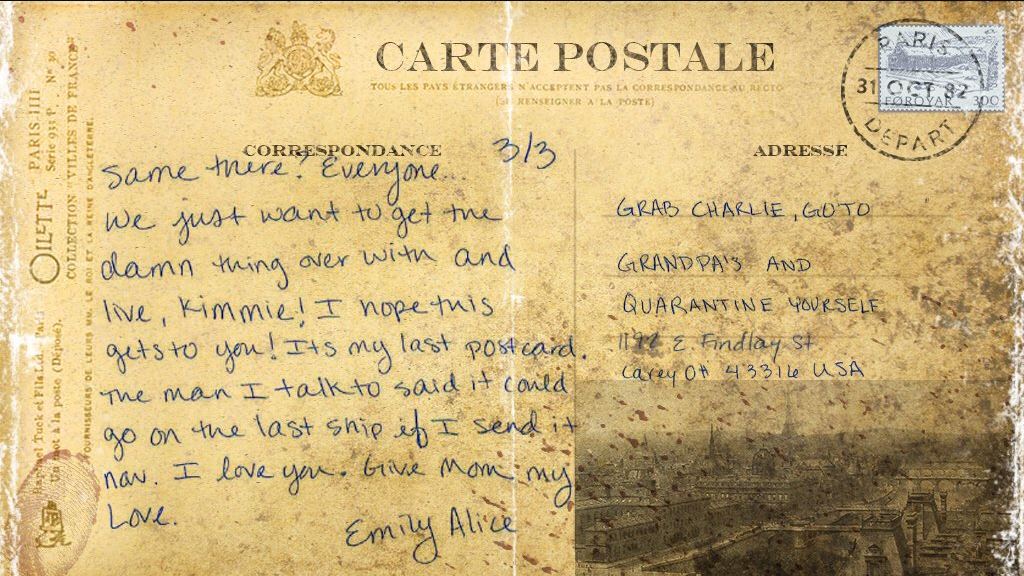 CARTE POSTALE
TOUS LES PAYS ÉTRANGERS N'ACCEPTENT PAS LA CORRESPONDANCE AU RECTO
(SE RENSEIGNER A LA POSTE)
PARIS
31 OCT 82
DEPART
FØROYAR 300
PARIS IIII
Serie 931 P. N° 30
COLLECTION "VILLES DE FRANCE"
OILETTE
FOURNISSEURS DE LEURS MM. LE ROI ET LA REINE D'ANGLETERRE.
CORRESPONDANCE
3/3
same there? Everyone...
we just want to get the
damn thing over with and
live, Kimmie! I hope this
gets to you! Its my last postcard.
The man I talk to said it could
go on the last ship if I send it
now. I love you. Give Mom my
Love.
Emily Alice
ADRESSE
GRAB CHARLIE, GO TO
GRANDPA'S AND
QUARANTINE YOURSELF
E Findlay St
Carey OH 43316 USA